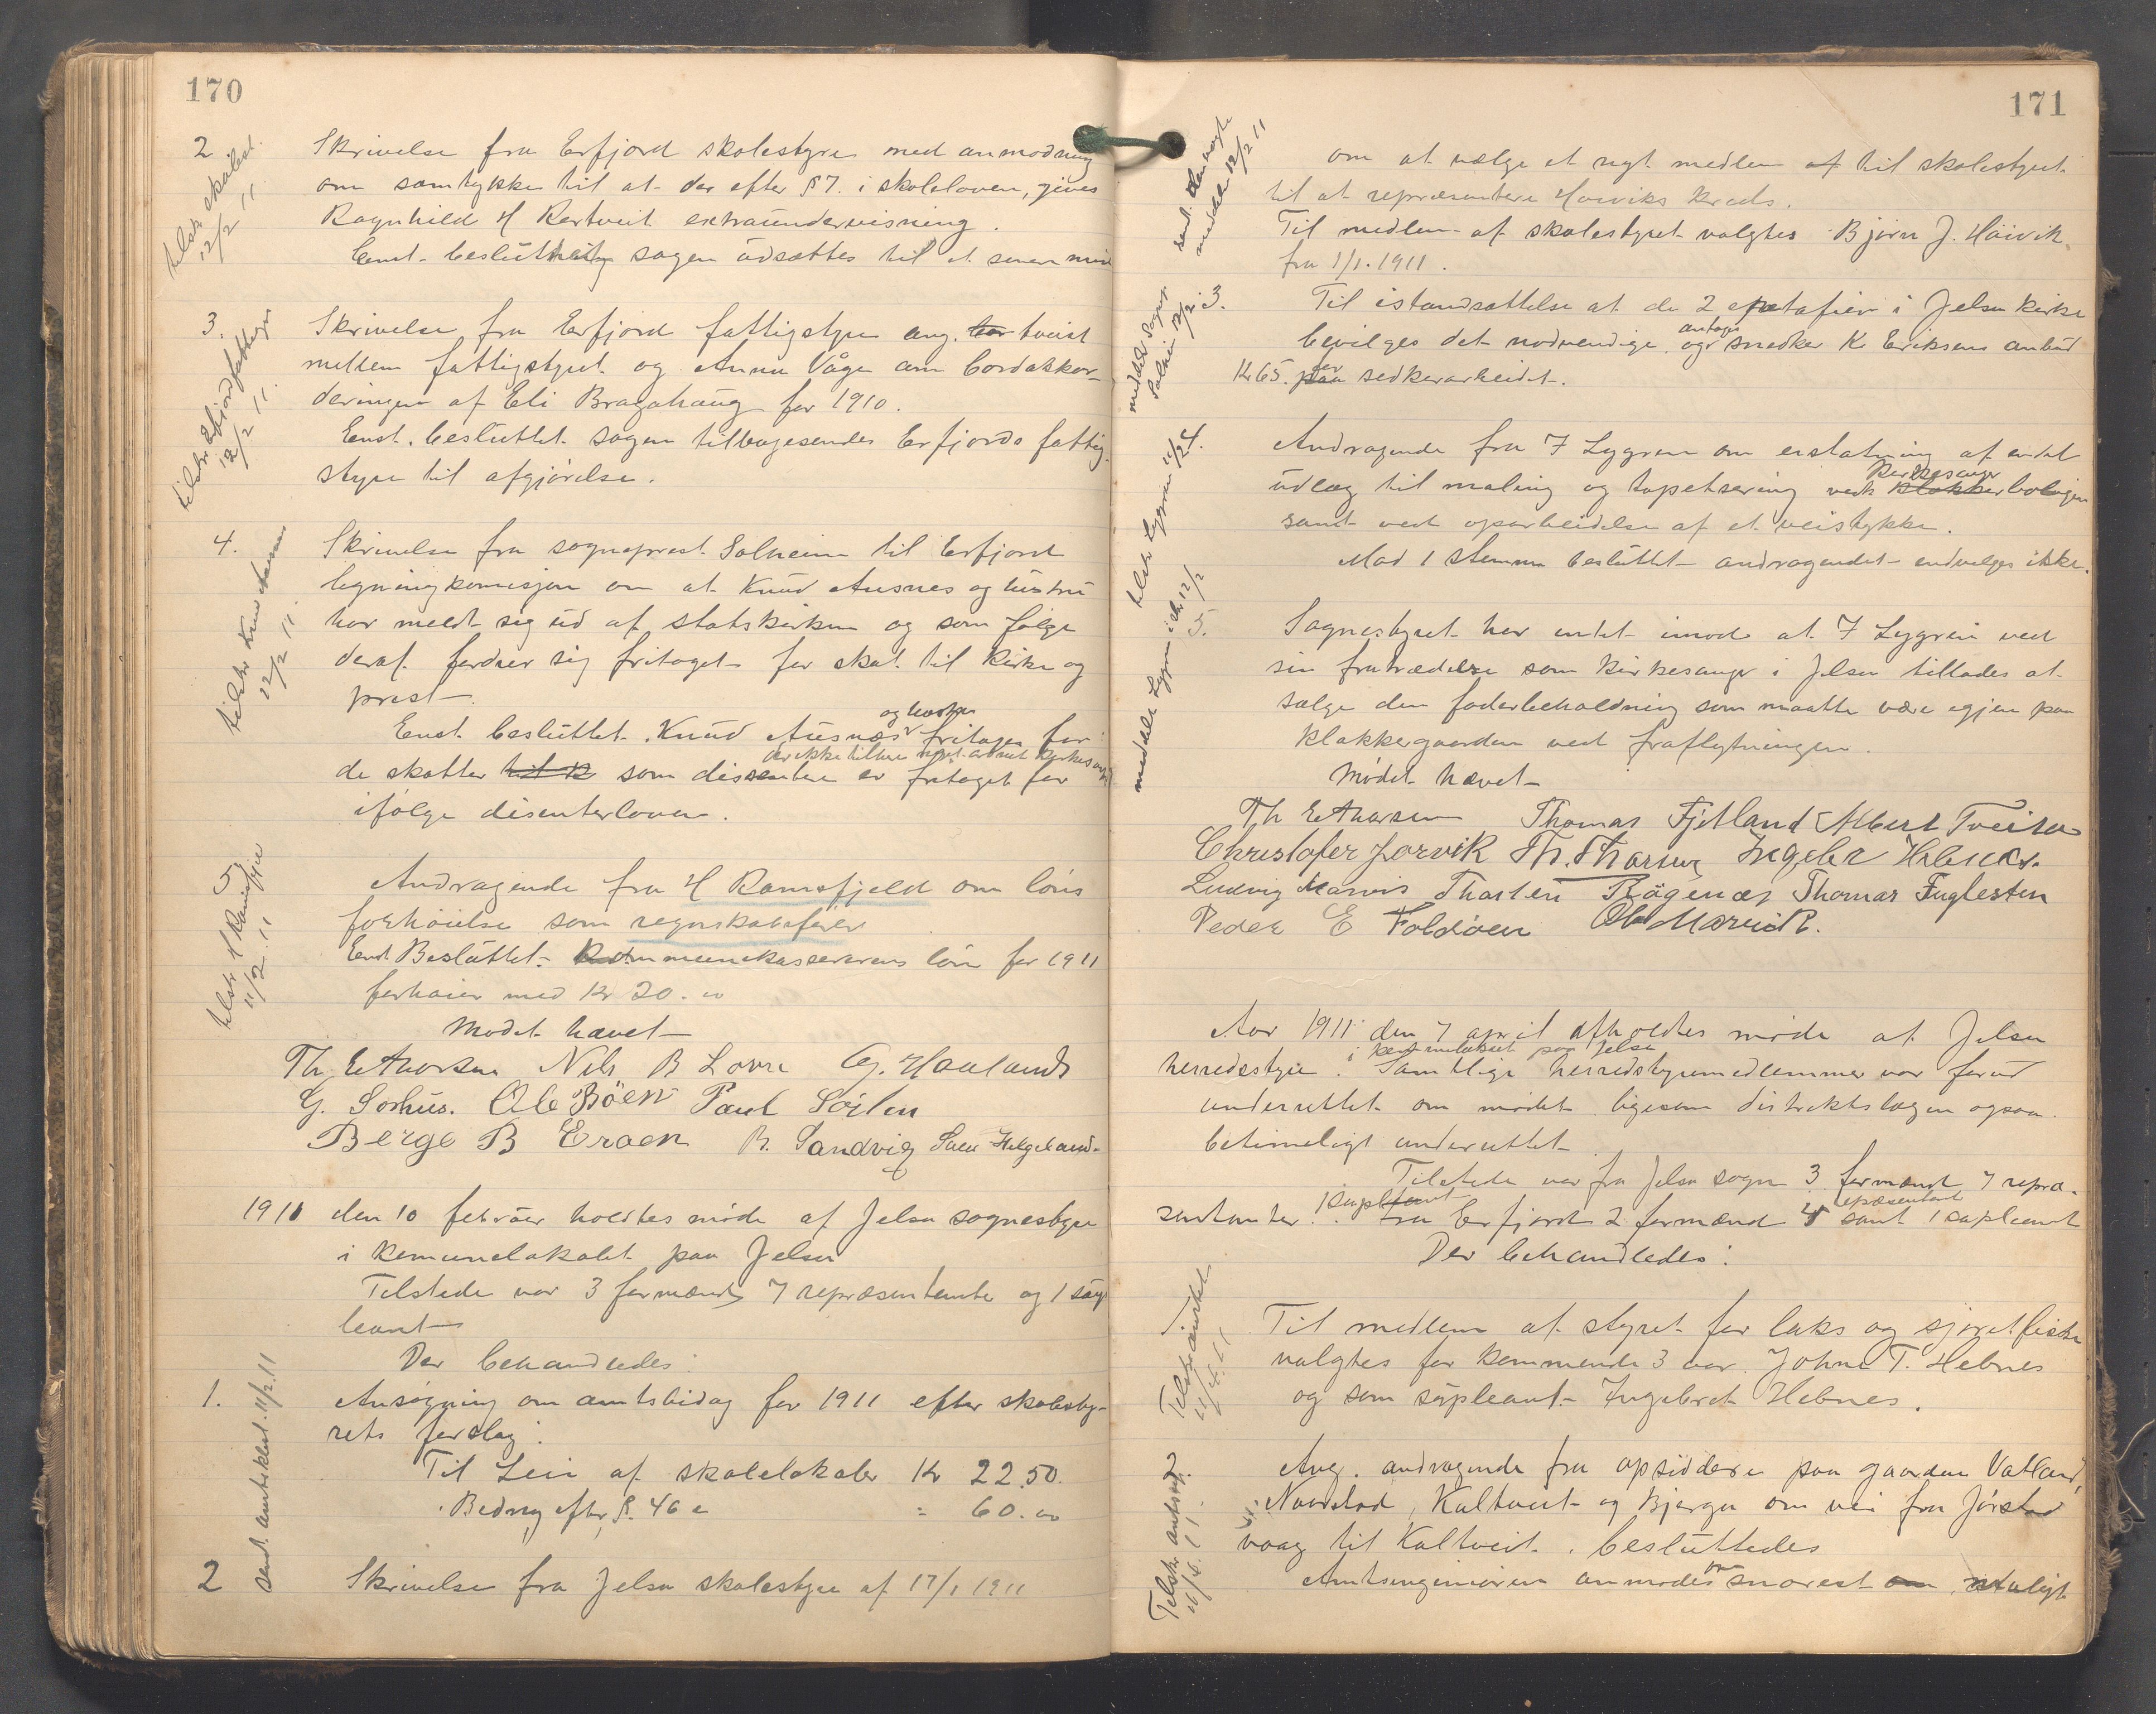 170
2
tilstr. skolest.
12/2 11.
Skrivelse fra Erfjord skolestyre med anmodning
om samtykke til at der efter § 7. i skoleloven, gives
Ragnhild H Kartveit extraundervisning.
Enst. besluttet sagen udsættes til et senere møde
3.
tilstr. Erfjord fattigst.
12/2 11.
Skrivelse fra Erfjord fattigstyre ang. tvist
mellem fattigstyret og Anna Våge om bordakkor-
deringen af Eli Bragahaug for 1910.
Enst. besluttet sagen tilbagesendes Erfjords fattig-
styre til afgjørelse.
4.
tilstr. Knud Ausnes
22/2 11.
Skrivelse fra sogneprest Solheim til Erfjord
ligningkomisjon om at Knud Ausnes og hustru
har meldt sig ud af statskirken og som følge
deraf fordrer sig fritaget for skat til kirke og
prest.
og hustru
Enst. besluttet. Knud Ausnæs fritages for
der ikke tilhører
de skatter til k som dissentere er fritaget for
ifølge disenterloven.
5
tilstr. H Ramsfjell
11/2 11
Andragende fra H Ramsfjeld om løns
forhøielse som regnskabsfører
Enst Besluttet. Kommunekassererens løn for 1911
forhøies med Kr 20.00
Mødet hævet
Th E Thorsen Nils B Lovra G. Haaland
G. Sørhus. Ole Bøen Paul Søilen
Berge B Eraen R. Sandvig Svein Helgeland.
1911 den 10 februar holdtes møde af Jelsa sognestyre
i Komunelokalet paa Jelsa
Tilstede var 3 formænd 7 repræsentanter og 1 sup
leant
Der behandledes:
1.
sendt amtskol. 11/2.11
Ansøgning om amtsbidrag for 1911 efter skolesty-
rets forslag.
Til Leie af skolelokaler Kr 22.50.
Bidrag efter § 46 e = 60.00
2 Skrivelse fra Jelsa skolestyre af 17/1 1911
171
meddelt 12/2 11
om at vælge et nyt medlem af til skolestyret
til at repræsentere Høiviks kreds.
Til medlem af skolestyret valgtes Bjørn J. Høivik.
fra 1/1. 1911.
3.
Til istandsættelse at de 2 epetafier i Jelsa kirke
antages
bevilges det nødvendige. og snedker K. Eriksens anbud
for
Kr 65. paa sedkerarbeidet.
4.
tilstr Lygren 11/2
Andragende fra F Lygren om erstatning af endel
kirkesanger
udlæg til maling og tapetsering ved klokkerboligen
samt ved oparbeidelse af et veistykke.
Mod 1 stemme besluttet andragendet indvilges ikke.
5.
meddelt Lygren 12/2
Sognestyret har intet imod at F Lygren ved
sin fratrædelse som kirkesanger i Jelsa tillades at
sælge den foderbeholdning som maatte være igjen paa
klokkergaarden ved fraflytningen.
Mødet hævet
Th E Thorsen Thomas Fjetland Albert Tveita
Christofer Jørvik Th. Thorsen Ingebr Hebnes.
Ludvig Marvik Thorsten Bøgenæs Thomas Fuglesten
Peder E Foldøen Ole Marvik.
Aar 1911 den 7 april afholdtes møde af Jelsa
i komunelokalet paa Jelsa
herredsstyre. Samtlige herredstyremedlemmer var forud
underrettet om mødet ligesom distriktslægen ogsaa
betimeligt underrettet.
Tilstede var fra Jelsa sogn 3 formænd 7 repræ-
1 supleant
repræsentant
sentanter. fra Erfjord 2 formænd 4 samt 1 supleant
Der behandledes:
1.
11/4. 11
Til medlem af styret for laks og sjøretfiske
valgtes for kommende 3 aar. Johne T. Hebnes
og som supleant. Ingebret Hebnes.
2.
11/4. 11.
Ang. andragende fra opsiddere paa gaarden Vatland,
Naadstad, Kaltveit og Bjerga om vei fra Jørstad
vaag til Kaltveit. besluttedes
om
Amtsingeniøren anmodes snarest om muligt